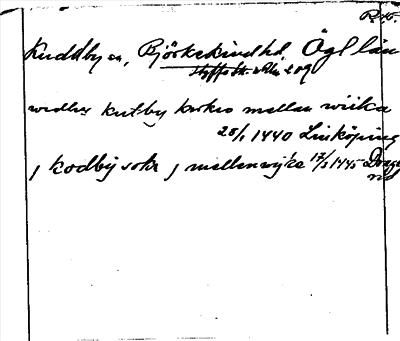 Kuddby sn, Björkekinds hd, Ögl län
widher kutby kirkio mellan wiika
25/1 1440 Linköping
j kodby sokn j mellanwijka 17/3 1445